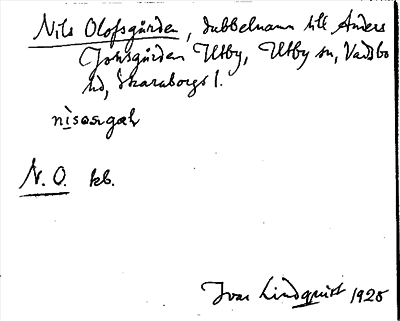 Nils Olofsgården, dubbelnamn till Anders
Jonsgården Utby, Utby sn, Vadsbo
hd, Skaraborgs l.
N. O. kb.
Ivar Lindquist 1925